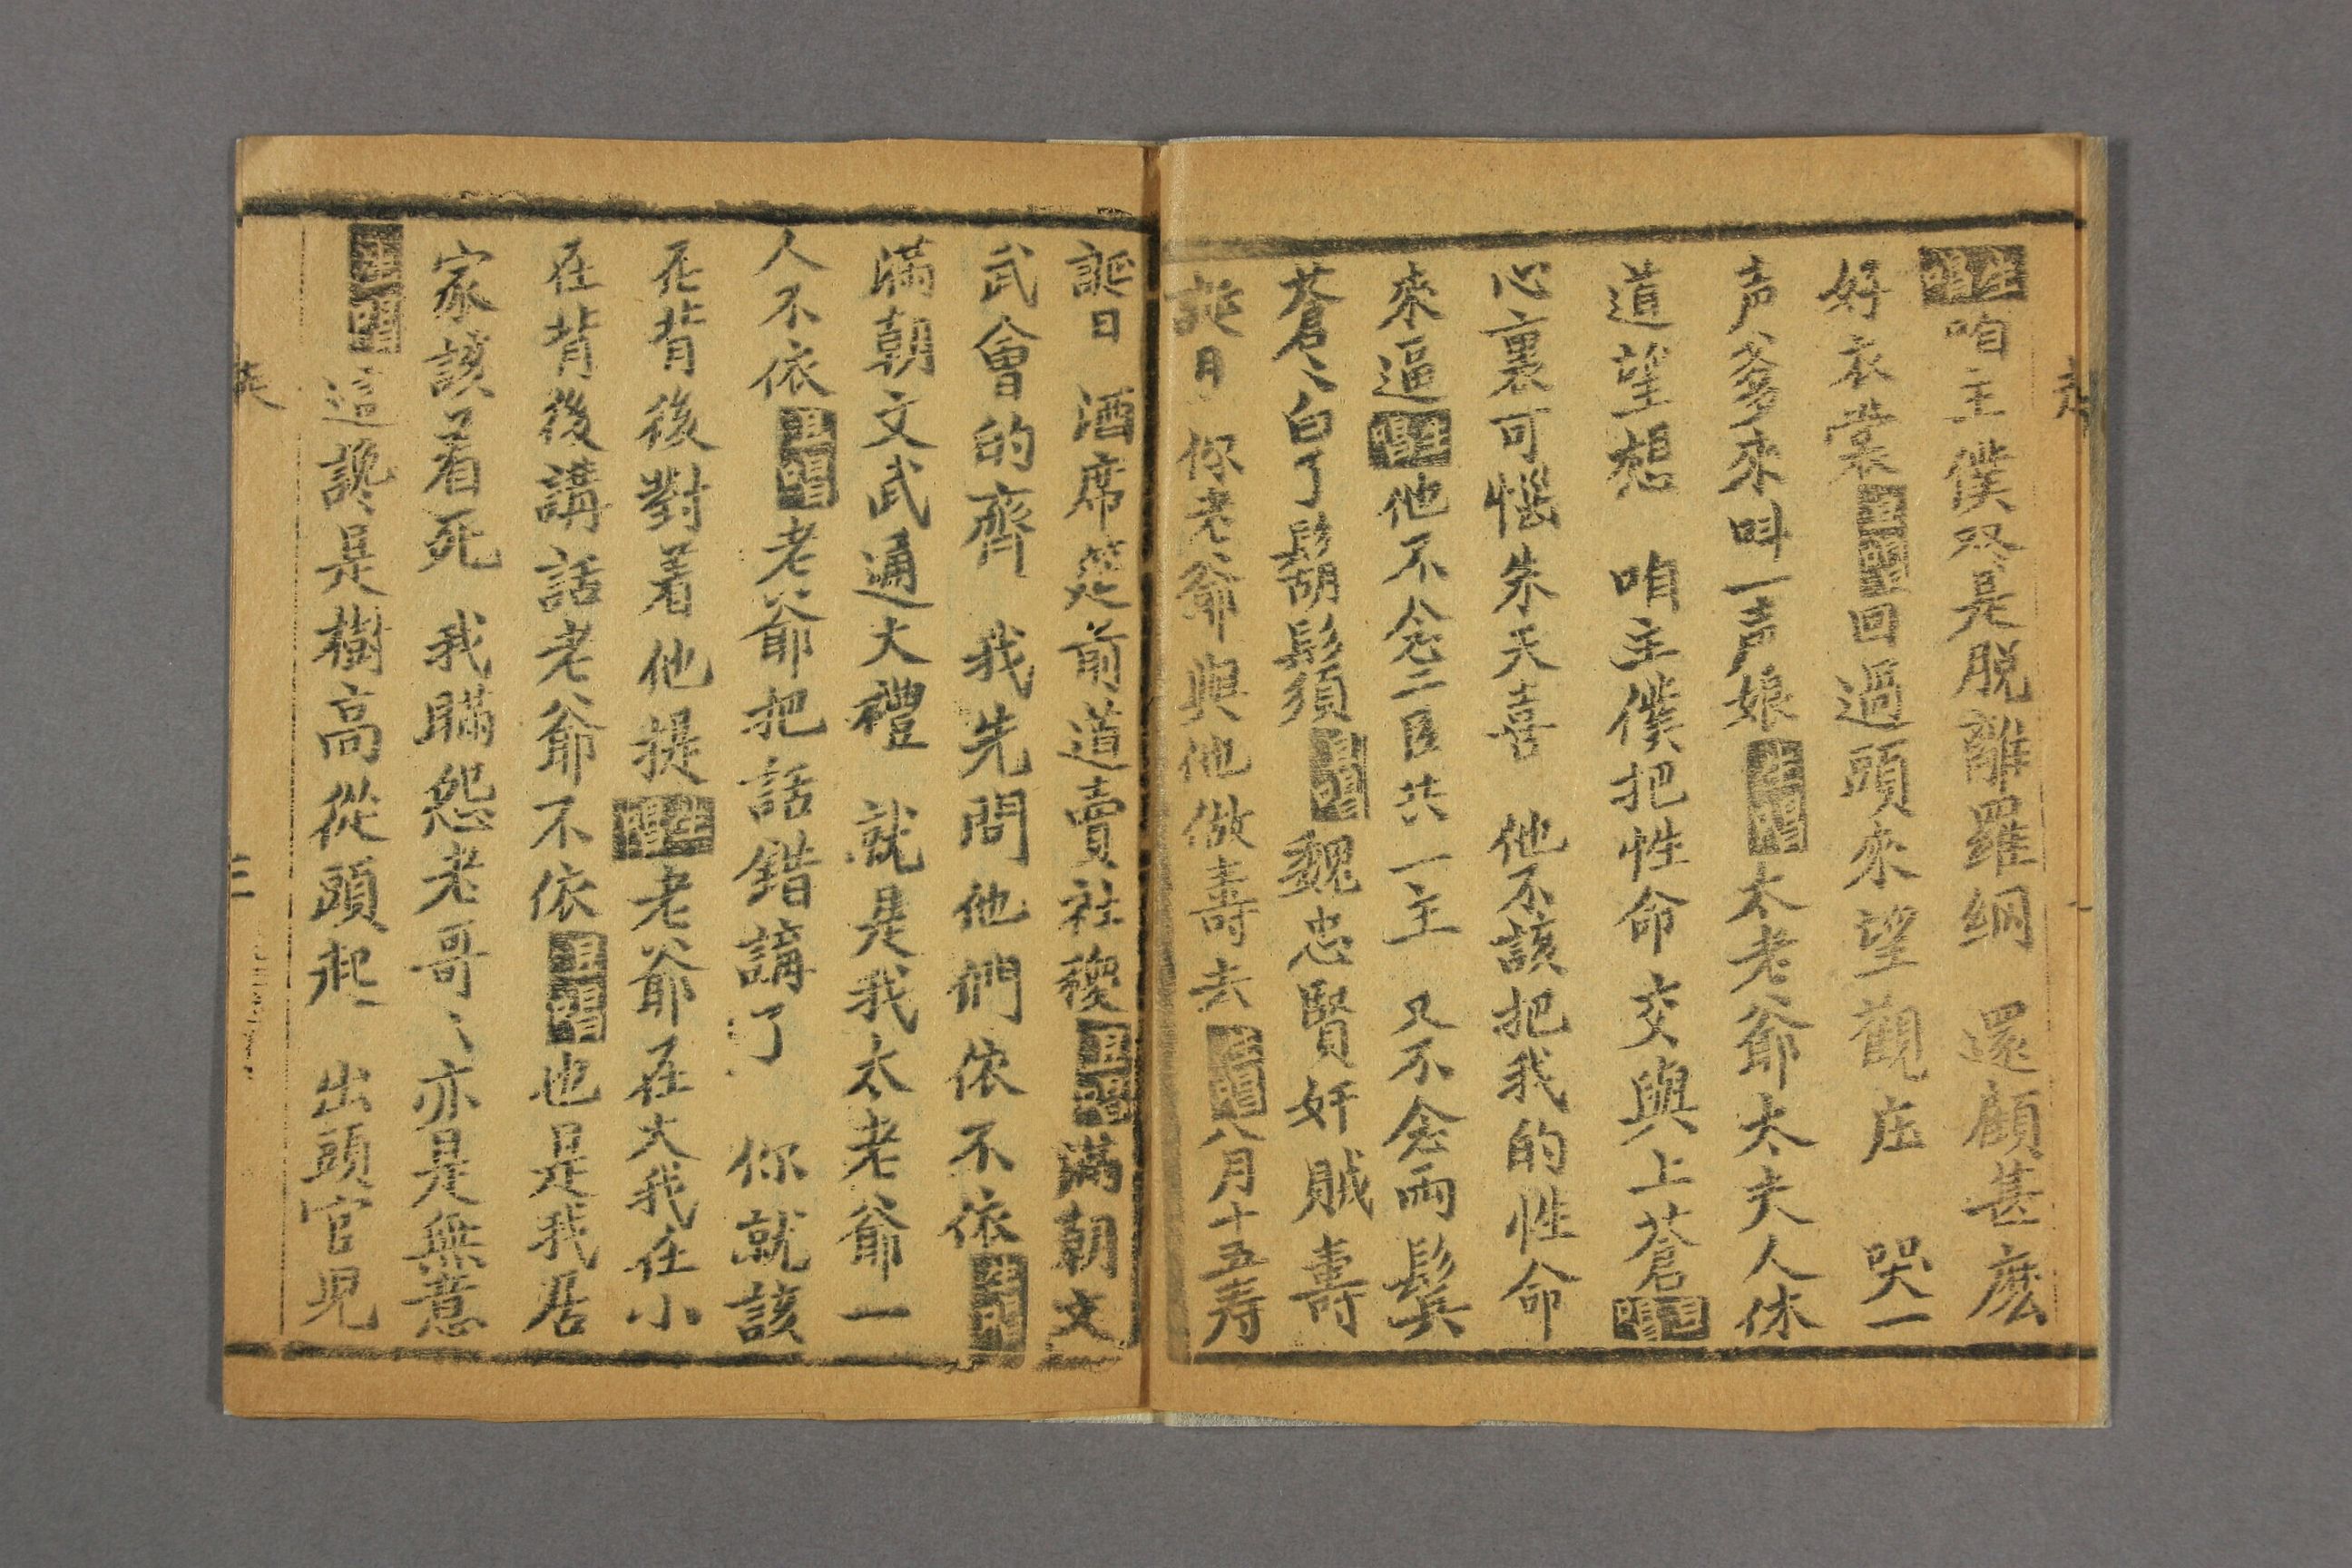 生唱咱主僕双〻是脱離羅網 還顧甚麽
好衣裳旦唱回過頭來望觀庄 哭一
声爹來叫一声娘生唱太老爺太夫人休
道望想 咱主僕把性命交與上蒼旦唱
心裏可惱朱天喜 他不該把我的性命
來逼生唱他不念二臣共一主 又不念兩鬓
蒼〻白了鬍鬚旦唱魏忠賢奸賊壽
誕日 你老爺與他做壽去生唱八月十五寿
誕日 酒席筵前道賣社稷旦唱滿朝文
武會的齊 我先問他們依不依生唱
滿朝文武通大禮 就是我太老爺一
人不依旦唱老爺把話錯講了 你就該
在背後對着他提生唱老爺在大我在小
在背後講話老爺不依旦唱也是我居
家該着死 我瞞怨老哥〻亦是無意
生唱這讒是樹高從頭起 出頭官児
三